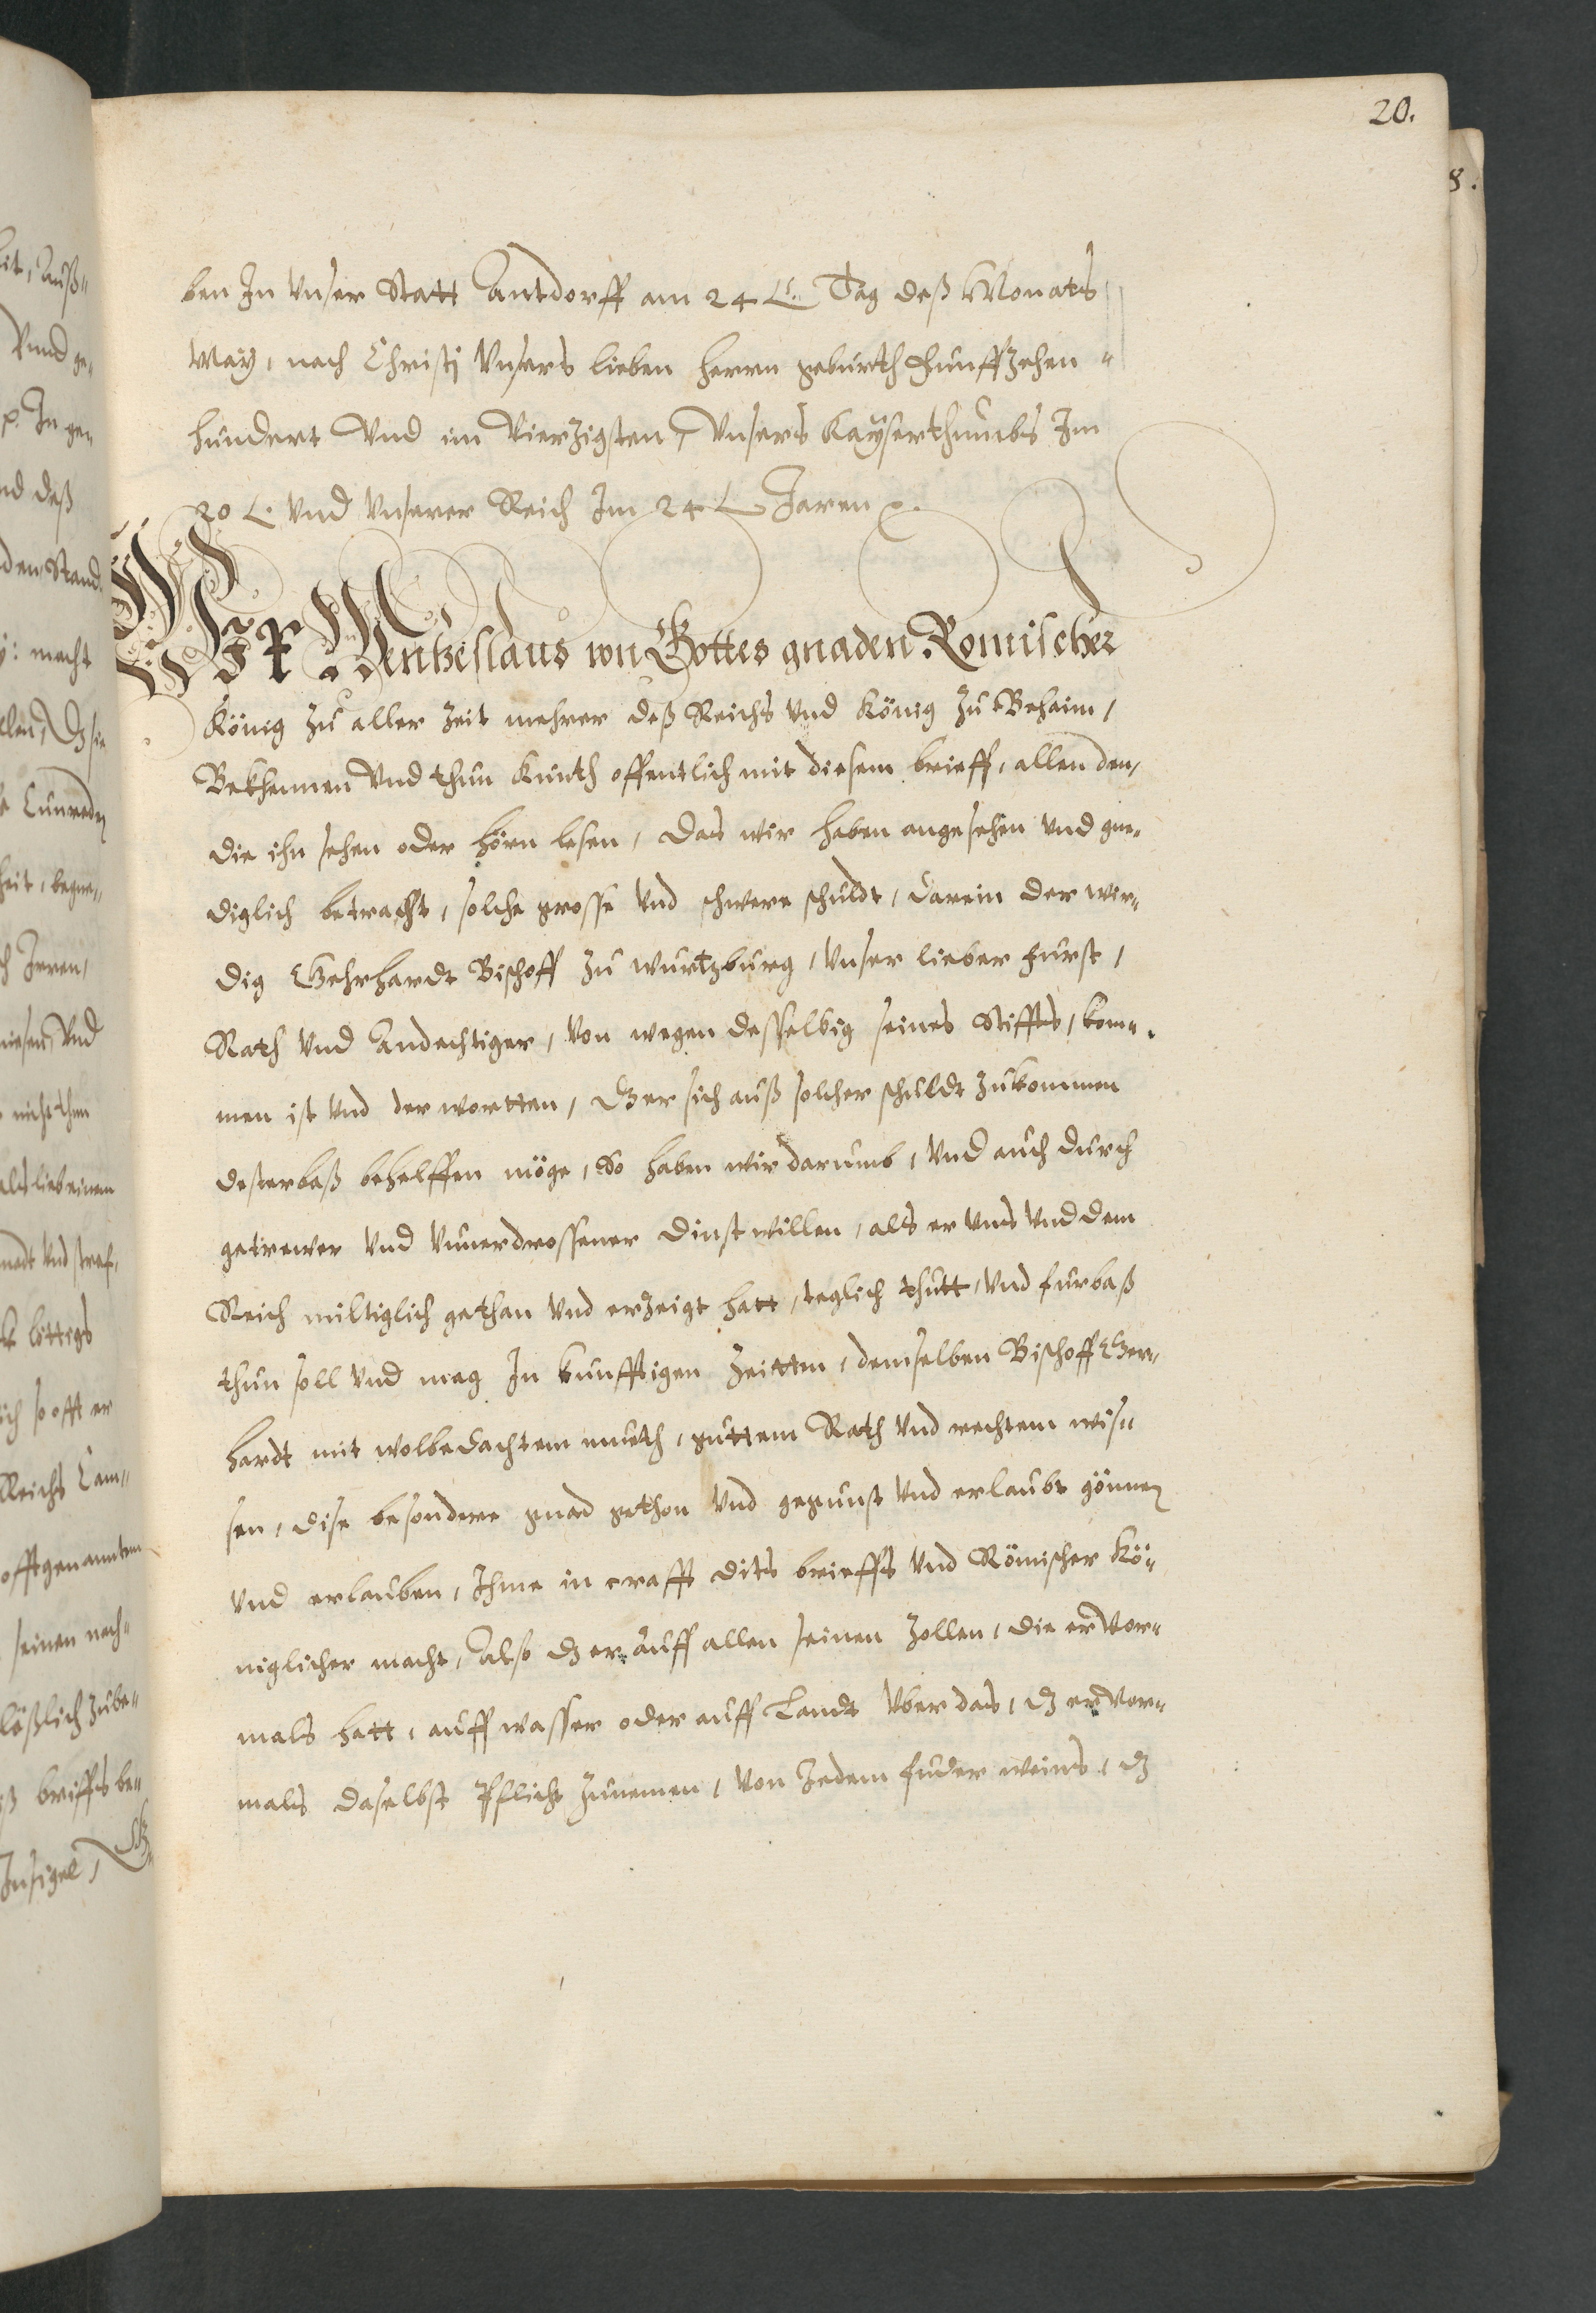 20.
ben In Unser Statt Antdorff am 24 t. Tag deß Monats
May, nach Christj Unsers lieben Herrn geburth Funffzehen-
hundert Und im Vierzigsten, Unsers Kayserthumbs Im
20 t. Und Unserer Reich Im 24 t Jaren
Wir Wentzeslaus von Gottes gnaden Romischer
König zu aller Zeit mehrer deß Reichs Und König zu Behaim,
Bekhennen Und thun Kunth offentlich mit diesem brieff, allen den,
die ihn sehen oder hörn lesen, das wir haben angesehen Und gne-
diglich betracht, solche grosse Und schwere schuldt, darein der wir-
dig Gehrhardt Bischoff zu wurtzburg, Unser lieber Furst,
Rath Und Andechtiger, Von wegen desselbig seines Stiffts, kom-
men ist Und der wortten, dz er sich auß solcher schuldt zukommen
desterbaß behelffen möge, So haben wir darumb, Und auch durch
getrewer Und Unuerdrossener dinst willen, als er Uns Und dem
Reich miltiglich gethan Und erzeigt hatt, teglich thutt, Und furbaß
thun soll Und mag In kunfftigen Zeitten, demselben Bischoff Ger-
hardt mit wolbedachtem muth, guttem Rath Und rechtem wis-
sen, dise besondere gnad gethon Und gegunst Und erlaubt gönnen
Und erlauben, Ihme in crafft dits brieffs Und Römischer Kö-
niglicher macht, Also dz er auff allen seinen Zollen, die er Vor-
mals hatt, auff wasser oder auff Landt Uber das, dz er Vor-
mals daselbst Pflicht zunemen, Von Jedem fuder weins, dz